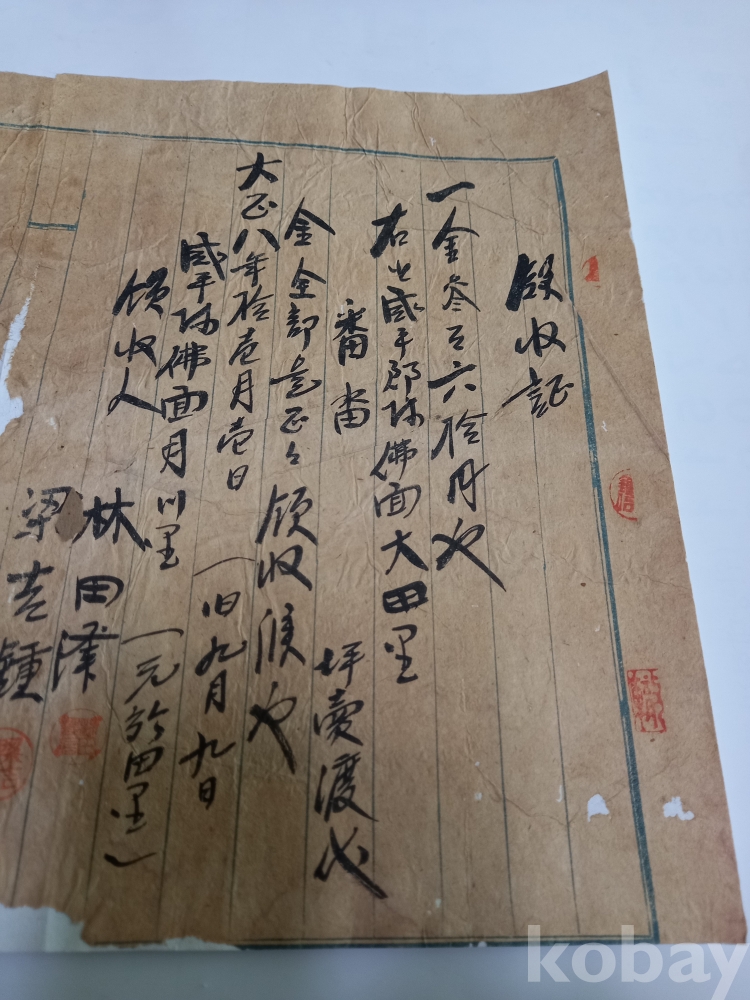 領收証
一金參百六拾円也
右之咸平郡孫佛面大田里
番畓 坪賣渡代
金全部 正ニ領收候也
大正八年拾壱月壱日 (旧九月九日
咸平孫佛面月川里 (元於田里)
領收人 林田
梁吉鍾
kobay